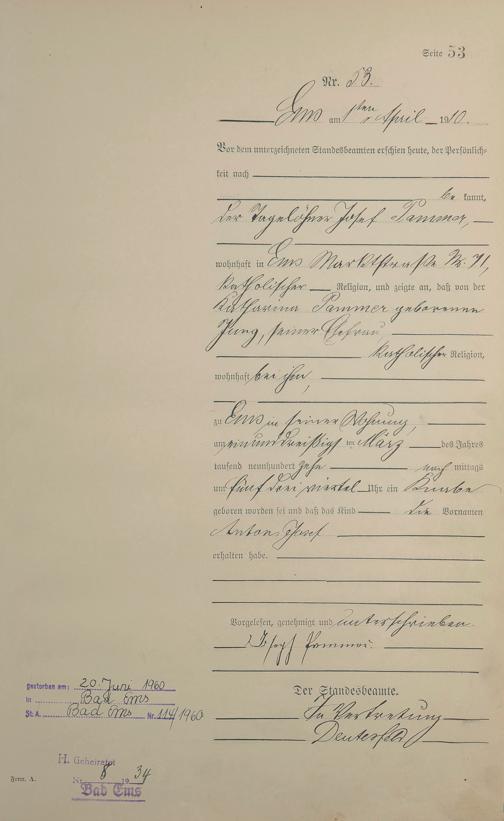 Seite 53
Nr. 53.
Ems am 1ten April 1910.
Vor dem unterzeichneten Standesbeamten erschien heute, der Persönlich-
keit nach
be kannt,
der Tagelöhner Josef Pammer,
wohnhaft in Ems Marktstraße Nr. 71,
katholischer Religion, und zeigte an, daß von der
Katharina Pammer geborenen
Jung, seiner Ehefrau
katholischer Religion,
wohnhaft bei ihm,
zu Ems in seiner Wohnung,
am einunddreißigsten März des Jahres
tausend neunhundert zehn nach mittags
um fünf drei viertel Uhr ein Knabe
geboren worden sei und daß das Kind die Vornamen
Anton Josef
erhalten habe.
Vorgelesen, genehmigt und unterschrieben.
Joseph Pammer.
Der Standesbeamte.
In Vertretung
gestorben am: 20. Juni 1960
in Bad Ems
St. A. Bad Ems Nr. 114/1960
H. Geheiratet
Nr. 8 1934
Bad Ems
Form. A.